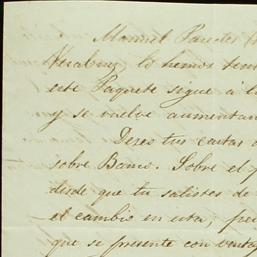 Manuel Paredes
lo hemos
este Paquete sigue á l
y se vuelve aumentan
Deseo tus cartas
sobre Banco. Sobre el
desde que tu salistes de
el cambio en esta; pe
que se presente con venta